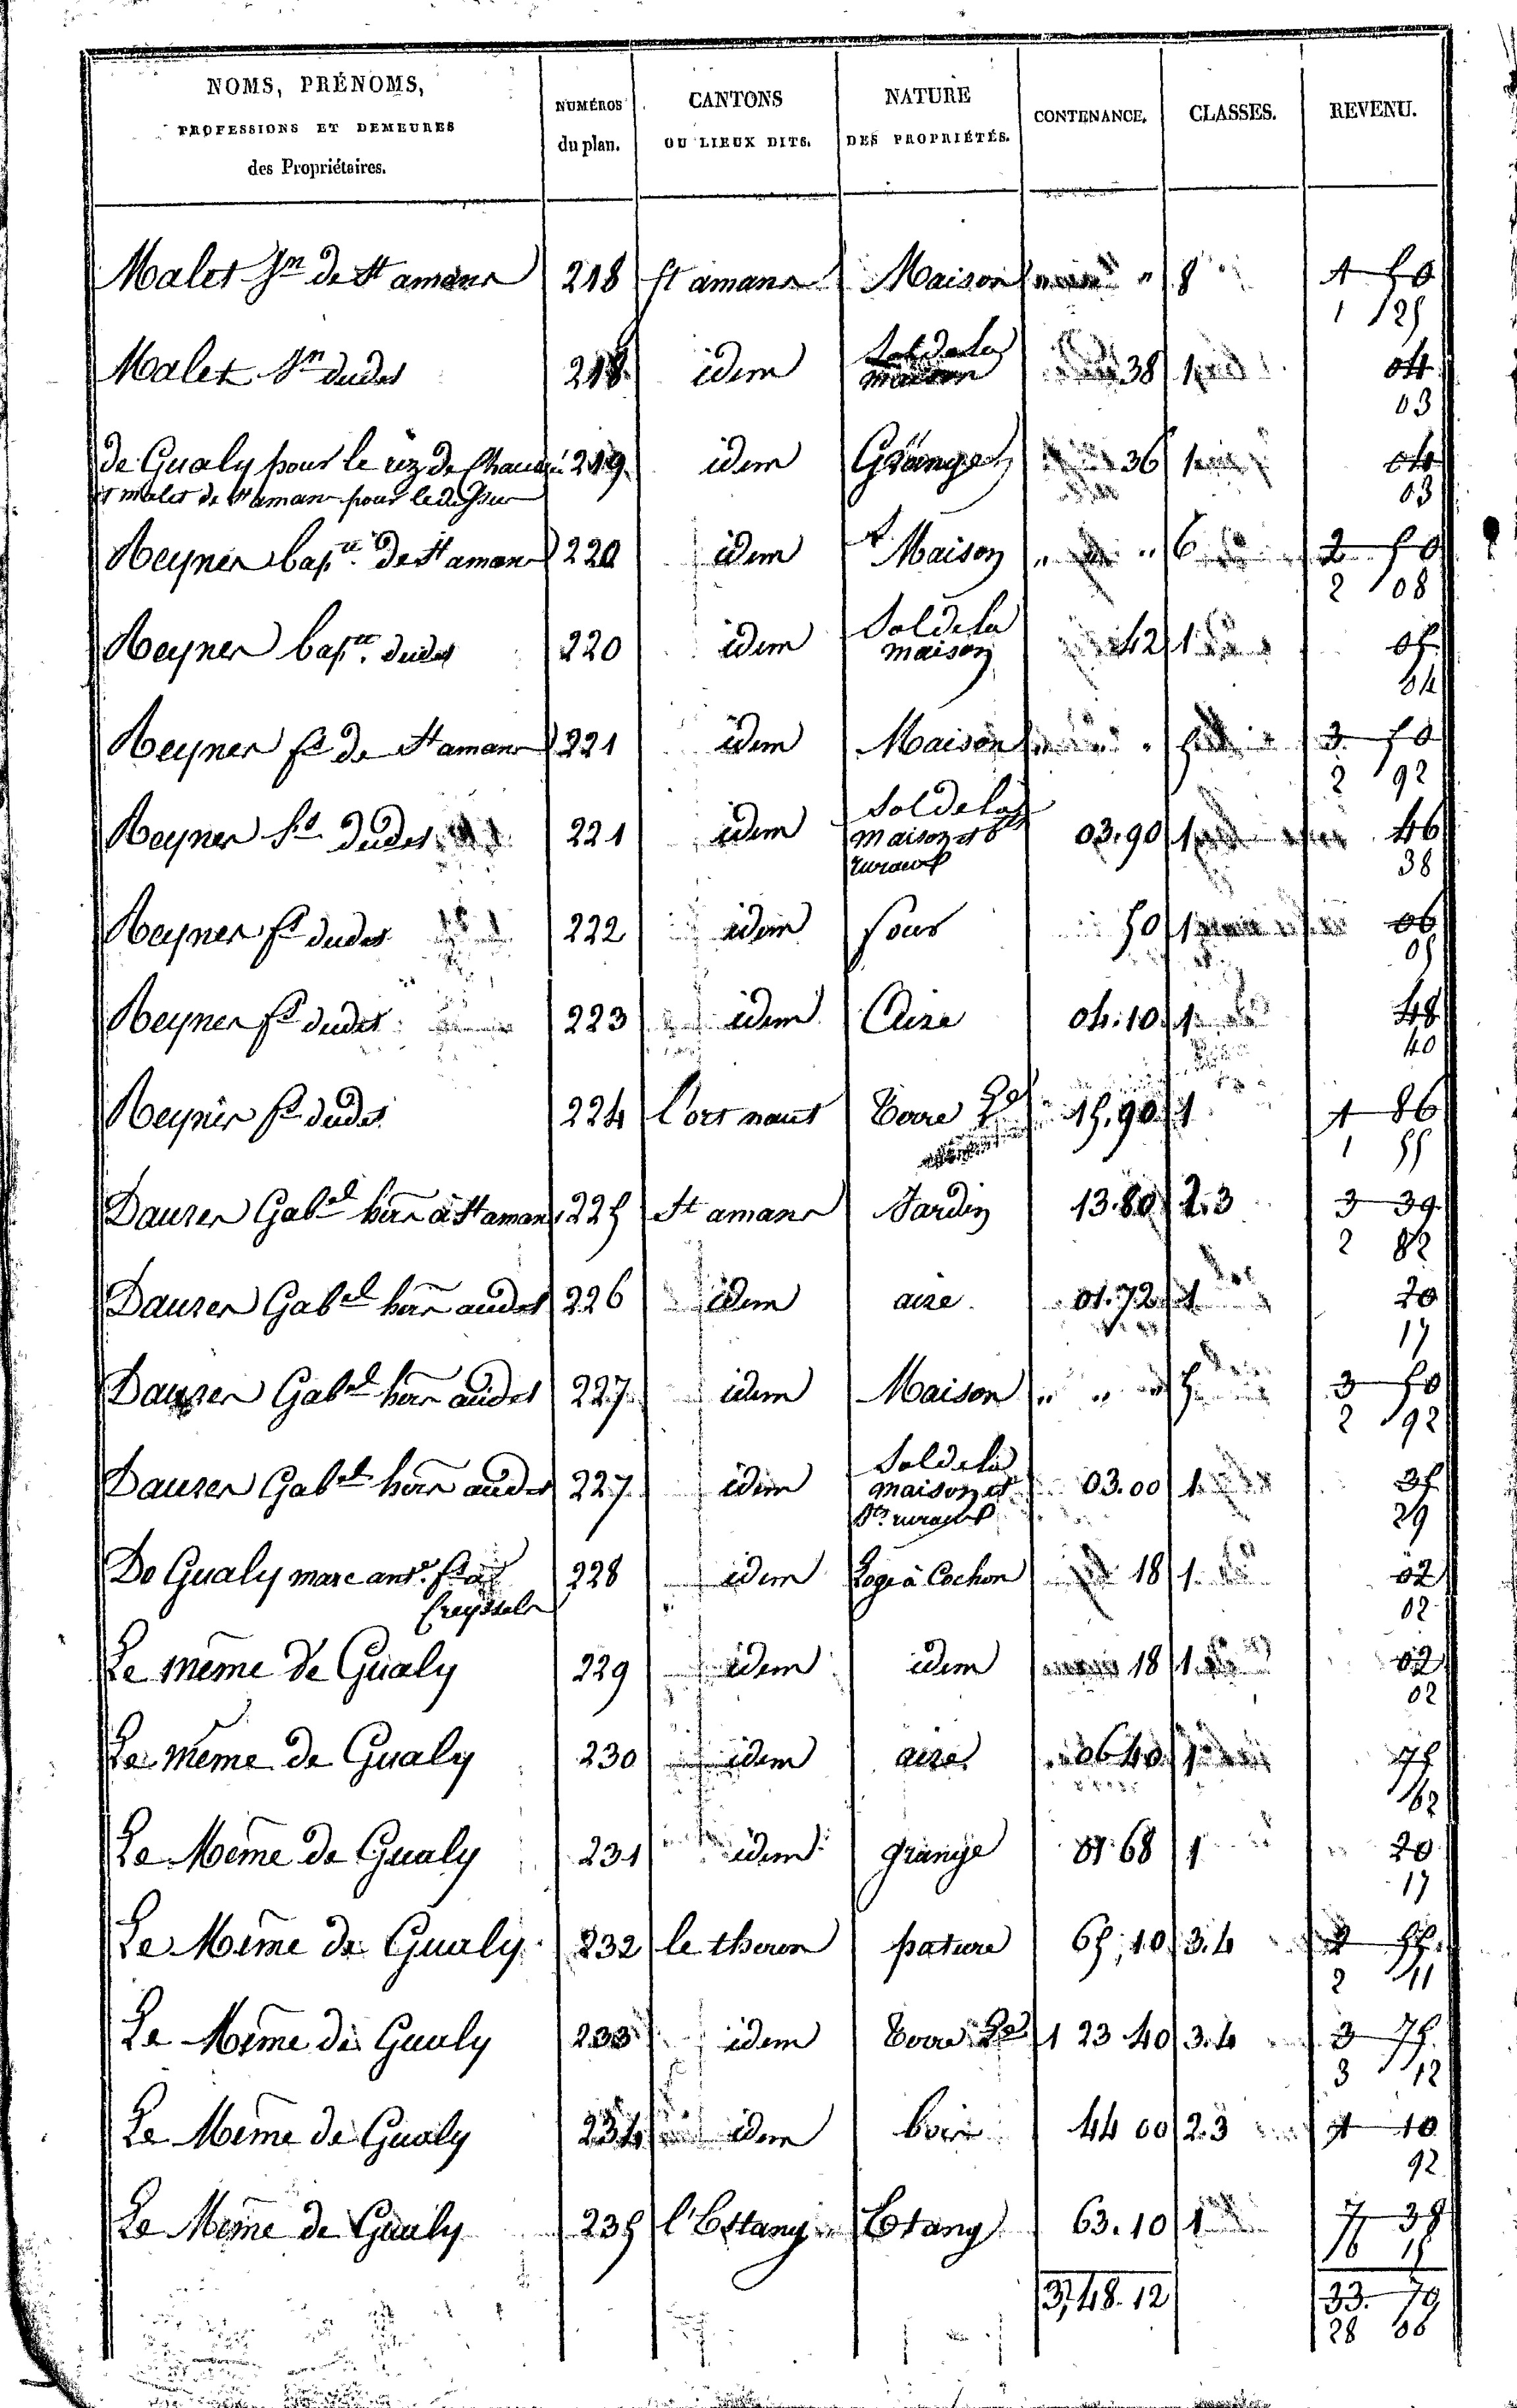 NOMS, PRÉNOMS,
PROFESSIONS ET DEMEURES
des Propriétaires.
NUMÉROS
du plan.
CANTONS
OU LIEUX DITS.
NATURE
DES PROPRIÉTÉS.
CONTENANCE.
CLASSES.
REVENU.
Malet Jn de St amans 218 St amans Maison " " 8 1 50
1 25
Malet Jn dudet 218 idem Sol de la maison 38 1 04
03
de Gualy pour le rez de Chaussée 219 idem Grange 36 1 04
et malet de St amans pour le dessus 03
bapte de St amans 220 idem Maison " " 6 2 50
2 08
bapte dudet 220 idem Sol de la maison 42 1 05
04
de St amans 221 idem Maison " " 5 3 50
2 92
dudet 221 idem Sol de la maison et bts ruraux 03.90 1 46
38
dudet 222 idem four 50 1 06
05
dudet 223 idem Aire 04.10 1 48
40
dudet 224 L'ort naut Terre 15.90 1 1 86
1 55
Gabel à St amans 225 St amans Jardin 13.80 2.3 3 39
2 82
Gabel audet 226 idem aire 01.72 1 20
17
Gabel audet 227 idem Maison " " 5 3 50
2 92
Gabel audet 227 idem Sol de la maison et bts ruraux 03.00 1 35
29
De Gualy marc ant. 228 idem Loge à Cochon 18 1 02
Creyssels 02
Le même de Gualy 229 idem idem 18 1 02
02
Le même de Gualy 230 idem aire 06 40 1 75
62
Le Même de Gualy 231 idem grange 01.68 1 20
17
Le Même de Gualy 232 le theron pature 65.10 3.4 2 55
2 11
Le Même de Gualy 233 idem Terre 1 23 40 3.4 3 75
3 12
Le Même de Gualy 234 idem bois 44 00 2.3 1 10
92
Le Même de Gualy 235 l'Estang Estang 63.10 1 7 38
6 15
3,48.12 33.79
28